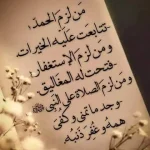 مَن لَزِمَ الحمدَ،
تتابَعَت عَلَيهِ الخيرات،
وَمَن لَزِمَ الإستغفار،
فُتحَت لَه المغاليق،
ومَن لَزِمَ الصلاة على النبي ﷺ
وجد ما تمنى وكُفيَ
همه وغُفِرَ ذنبه.